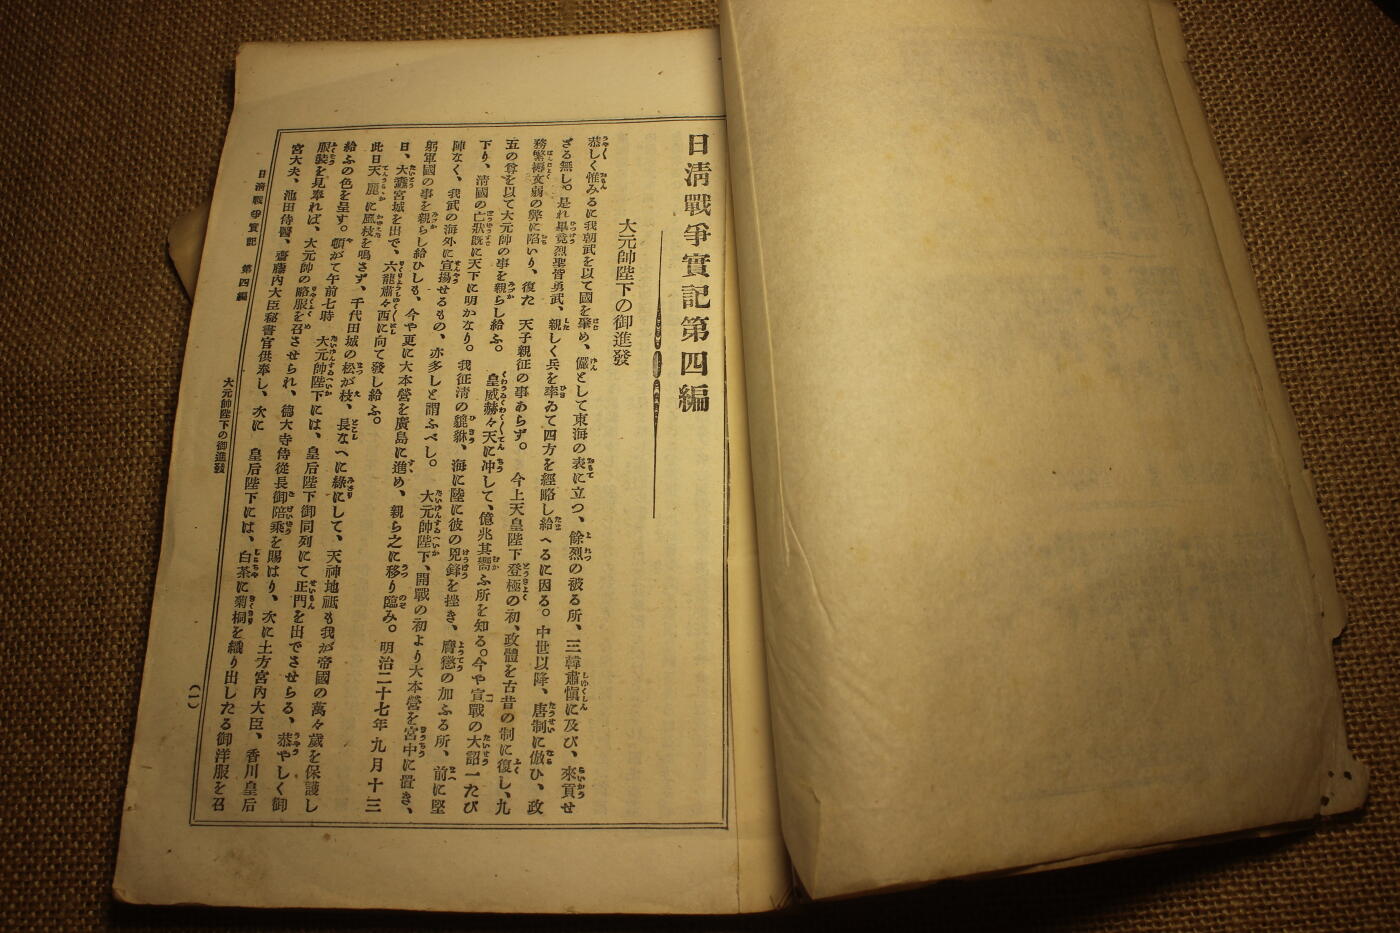 日淸戰爭實記第四編
大元帥陛下の御進發
恭しく惟みるに我朝武を以て國を肇め、儼として東海の表に立つ、餘烈の被る所、三韓肅愼に及び、來貢せ
ざる無し。是れ畢竟烈聖皆勇武、親しく兵を率ゐて四方を經略し給へるに因る。中世以降、唐制に倣ひ、政
務繁褥文弱の弊に陷いり、復た 天子親征の事あらず。 今上天皇陛下登極の初、政體を古昔の制に復し、九
五の尊を以て大元帥の事を親らし給ふ。 皇威赫々天に冲して、億兆其嚮ふ所を知る。今や宣戰の大詔一たび
下り、淸國の亡狀既に天下に明かなり。我征淸の貔貅、海に陸に彼の兇鋒を挫き、膺懲の加ふる所、前に堅
陣なく、我武の海外に宣揚せるもの、亦多しと謂ふべし。 大元帥陛下、開戰の初より大本營を宮中に置き、
躬軍國の事を親らし給ひしも、今や更に大本營を廣島に進め、親ら之に移り臨み。明治二十七年九月十三
日、大纛宮城を出で、六龍肅々西に向て發し給ふ。
此日天 麗に風枝を鳴さず、千代田城の松が枝、長なへに綠にして、天神地祇も我が帝國の萬々歲を保護し
給ふの色を呈す。頓がて午前七時 大元帥陛下には、皇后陛下御同列にて正門を出でさせらる、恭やしく御
服裝を見奉れば、大元帥の略服を召させられ、德大寺侍從長御陪乘を賜はり、次に土方宮內大臣、香川皇后
宮大夫、池田侍醫、齋藤內大臣秘書官供奉し、次に 皇后陛下には、白茶に菊桐を織り出したる御洋服を召
日淸戰爭實記 第四編 大元帥陛下の御進發 (一)